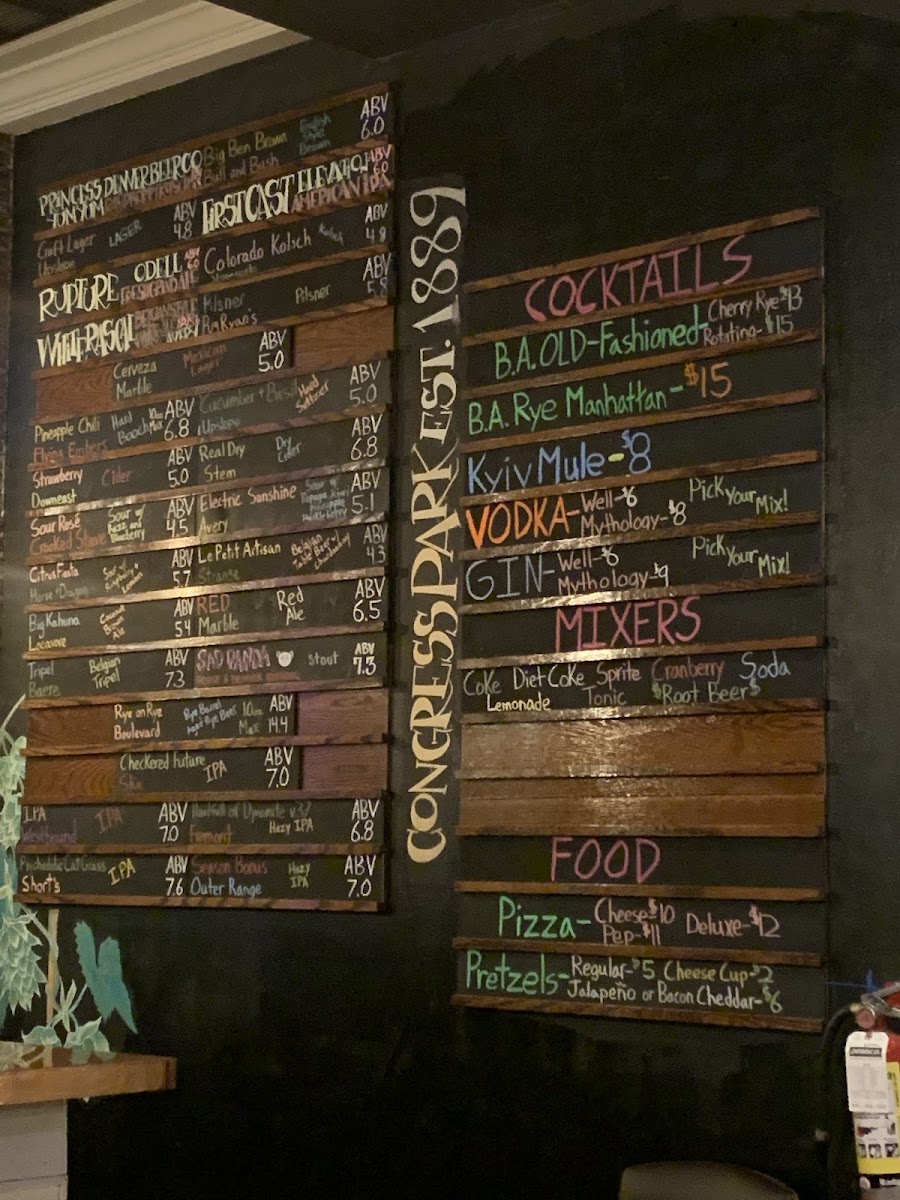 Big Ben Brown English Style Brown ABV 6.0
Bull and Bush
PRINCESS YUM YUM DENVER BEER CO
FIRST CAST ELEVATION AMERICAN IPA ABV 6.0
Craft Lager LAGER ABV 4.8
Upslope
Colorado Kolsch Kolsch ABV 4.9
RUPTURE ODELL
Pilsner Pilsner ABV
Bierstadt
WIT FRASCAL AVERY
Cerveza Mexican Lager ABV 5.0
Marble
Pineapple Chili Hard Booch 10oz Max ABV 6.8
Flying Embers
Cucumber + Basil Hard Seltzer ABV 5.0
Upslope
Strawberry Cider ABV 5.0
Downeast
Real Dry Dry Cider ABV 6.8
Stem
Sour Rosé Sour w/ Razz and Blueberry ABV 4.5
Crooked Stave
Electric Sunshine ABV 5.1
Avery
Citrus Fiesta ABV 5.7
Horse + Dragon
Le Petit Artisan ABV 4.3
Strange
Big Kahuna Coconut Brown Ale ABV 5.4
Locavore
RED Red Ale ABV 6.5
Marble
Tripel Belgian Tripel ABV 7.3
Baere
SAD PANDA Stout ABV 7.3
HORSE & DRAGON
Rye on Rye Rye Barrel Aged Rye Beer 10oz Max ABV 14.4
Boulevard
Checkered Future IPA ABV 7.0
Ska
IPA IPA ABV 7.0
Westbound
Handful of Dynamite v.37 Hazy IPA ABV 6.8
Fremont
Psychedelic Cat Grass IPA ABV 7.6
Short's
Season Bonus Hazy IPA ABV 7.0
Outer Range
CONGRESS PARK EST. 1889
COCKTAILS
B.A. OLD-Fashioned Cherry Rye $13
Rotating- $15
B.A. Rye Manhattan - $15
Kyiv Mule - $8
VODKA- Well-$6 Pick Your Mix!
Mythology-$8
GIN- Well-$6 Pick Your Mix!
Mythology-$9
MIXERS
Coke Diet Coke Sprite Cranberry Soda
Lemonade Tonic $Root Beer$
FOOD
Pizza- Cheese-$10 Deluxe-$12
Pep-$11
Pretzels- Regular-$5 Cheese Cup-$2
Jalapeño or Bacon Cheddar-$6